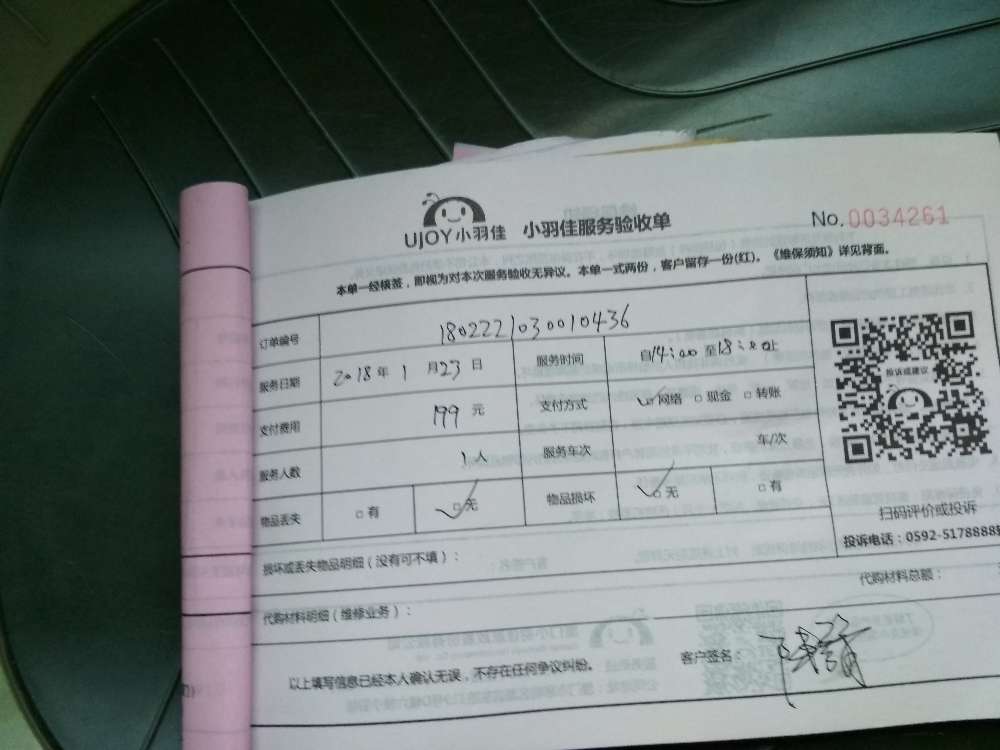 UJOY小羽佳 小羽佳服务验收单 No.0034261
本单一经核签，即视为对本次服务验收无异议。本单一式两份，客户留存一份(红)。《维保须知》详见背面。
订单编号 1802221030010436
服务日期 2018年1月23日 服务时间 自14:00至18:00止
支付费用 199元 支付方式 □网络 □现金 □转账
服务人数 1人 服务车次 车/次
物品丢失 □有 □无 物品损坏 □无 □有
投诉或建议
扫码评价或投诉
投诉电话：0592-5178888
损坏或丢失物品明细（没有可不填）：
代购材料明细（维修业务）： 代购材料总额：
以上填写信息已经本人确认无误，不存在任何争议纠纷。 客户签名：